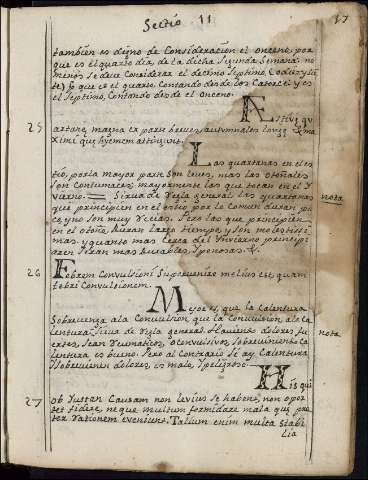 Sectio II
17
tambien es digno de Consideracion el onceno, por
que es el quarto dia, de la dicha segunda semana: no
menos se deve considerar el decimo septimo,
te) que es el quarto, Contando desde los Catorce: y es
el septimo, Contando desde el onceno.
Æstivę qu
25 artanę, magna ex parte breves, autumnales longę & ma
ximè quę hyemem
Las quartanas en el es
tio, por la mayor parte son leves, mas las otoñales
son mayormente las que tocan en el Y
vierno. Sirva de regla general: las quartanas nota
que principien en el estio por lo comun duran po
co, y no son muy recias. Pero las que principien
en el otoño, duran largo tiempo, y son molestissi
mas, y quanto mas cerca del Ynvierno princip
iaren seran mas durables, y penosas &.
26 Febrem Convulsioni Supervenire melius est, quam
febri Convulsionem.
Mejor es, que la Calentura
Sobrevenga a la Convulsion, que la Convulsion, a la Ca
lentura. Sirva de regla general. Aqualesquier dolores, fu
ertes, sean reumaticos, o convulsivos, Sobreviniendo Ca nota
lentura es bueno. Pero al Contrario si ay Calentura
y Sobrevienen dolores, es malo, y peligroso.
His qui
27 ob Justan Causam non levius se habent, non opor
tet fidere, neque multum formidare mala quę prę
ter rationem eveniunt. Talium enim multa stabi
lia